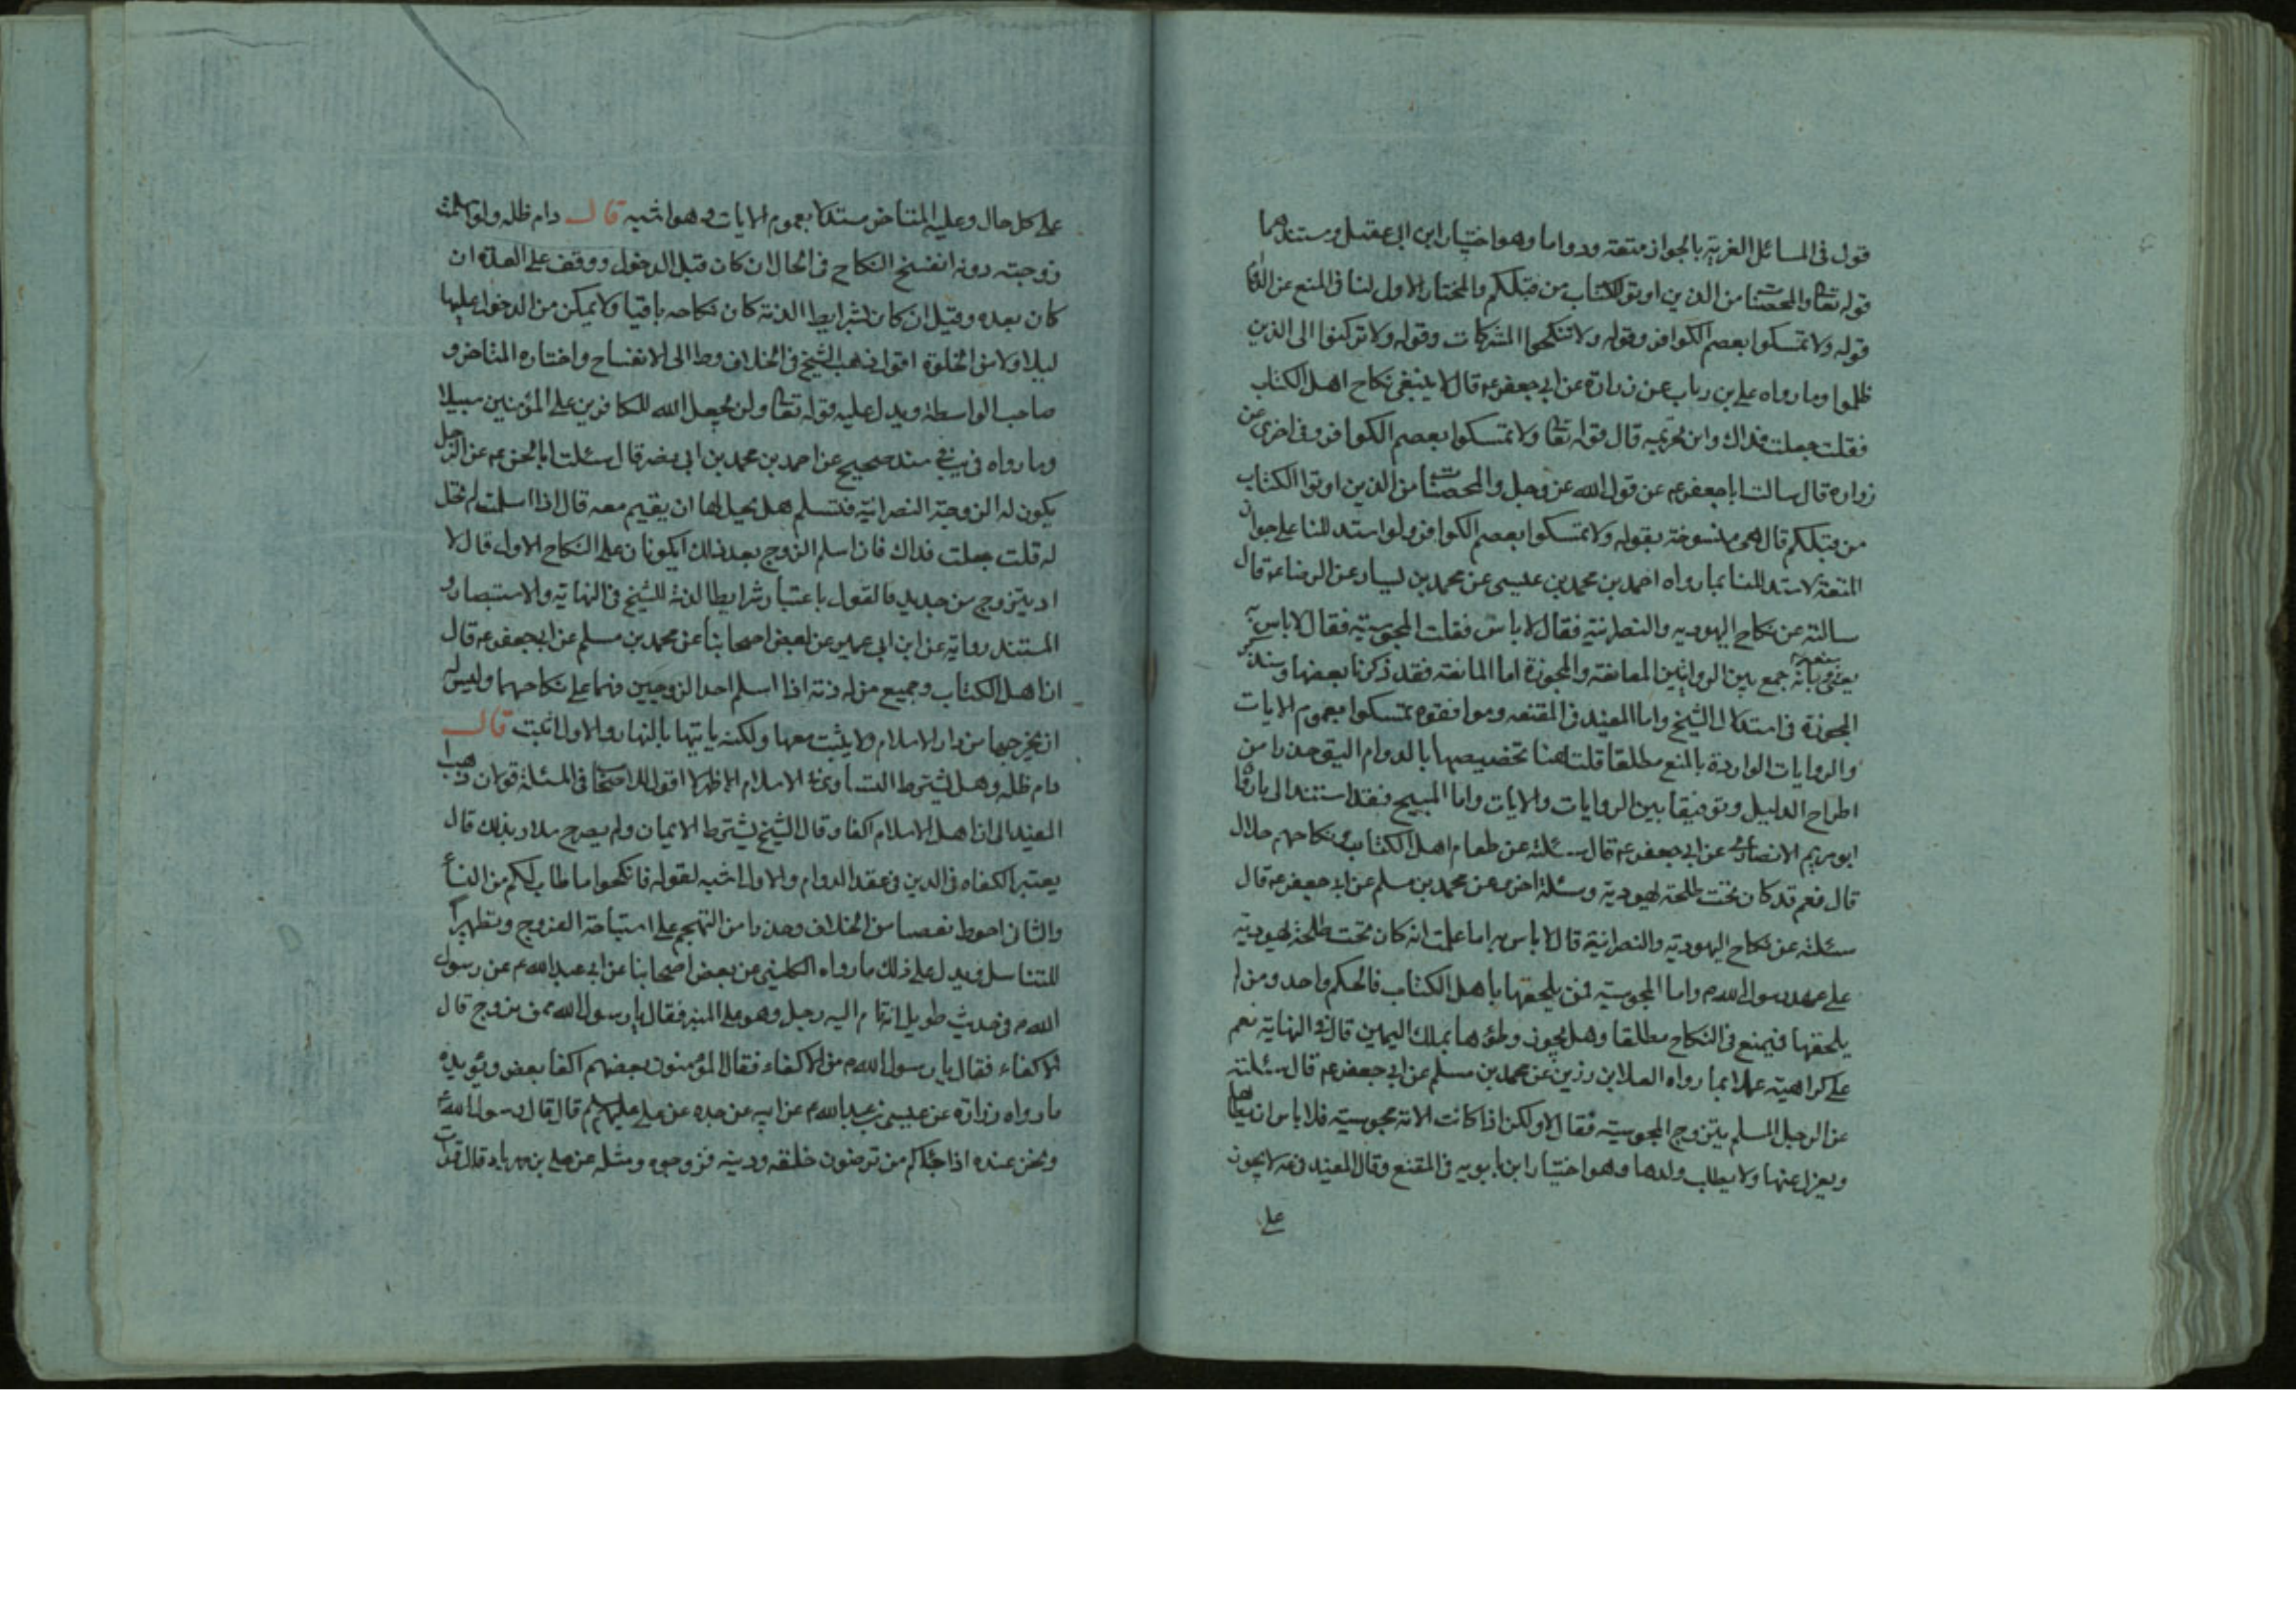 قول فى المسائل الغرية بالجواز متعة ودواما وهو اختيار ابن ابى عقيل ومستندهما
قوله تعا والمحصنات من الذين اوتوا الكتاب من قبلكم والمختار الاول لنا فى المنع عن الدوام
قوله ولا تمسكوا بعصم الكوافر وقوله ولا تنكحوا المشركات وقوله ولا تركنوا الى الذين
ظلموا وما رواه على بن رباب عن زرارة عن ابى جعفر ع قال لا ينبغى نكاح اهل الكتاب
فقلت جعلت فداك واين تحريمه قال قوله تعا ولا تمسكوا بعصم الكوافر وفى اخرى عن
زرارة قال سالت ابا جعفر ع عن قول الله عز وجل والمحصنات من الذين اوتوا الكتاب
من قبلكم قال هى منسوخة بقوله ولا تمسكوا بعصم الكوافر ولو استدللنا على جواز
المتعة لاستدللنا بما رواه احمد بن محمد بن عيسى عن محمد بن سيار عن الرضا ع قال
سالته عن نكاح اليهوديه والنصرانية فقال لا باس فقلت المجوسية فقال لا باس به
يعنى متعة وبانه جمع بين الروايتين المانعة والمجوزة اما المانعة فقد ذكرنا بعضها وسنذكر
المجوزة فى استدلال الشيخ واما المفيد فى المقنعه وموافقوه تمسكوا بعموم الايات
والروايات الواردة بالمنع مطلقا قلت هنا تخصيصها بالدوام اليق حذرا من
اطراح الدليل وتوفيقا بين الروايات والايات واما المبيح فقد استند الى ما رواه
ابو مريم الانصارى عن ابى جعفر ع قال سئلته عن طعام اهل الكتاب ونكاحهم حلال
قال نعم قد كان تحت طلحة يهودية وسئلة اخرى عن محمد بن مسلم عن ابى جعفر ع قال
سئلته عن نكاح اليهودية والنصرانية قال لا باس به اما علمت انه كان تحت طلحة يهودية
على عهد رسول الله ص واما المجوسية فمن يلحقها باهل الكتاب فالحكم واحد ومن لم
يلحقها فيمنع فى النكاح مطلقا وهل يجوز وطؤها بملك اليمين قال فى النهاية نعم
على كراهية عملا بما رواه العلا بن رزين عن محمد بن مسلم عن ابى جعفر ع قال سئلته
عن الرجل المسلم يتزوج المجوسية فقال لا ولكن اذا كانت الامة مجوسية فلا باس ان يطاها
ويعزل عنها ولا يطلب ولدها وهو اختيار ابن بابويه فى المقنع وقال المفيد فى مه لا يجوز
على
على كل حال وعليه المتاخر مستدلا بعموم الايات وهو اشبه قال دام ظله ولو اسلمت
زوجته دونه انفسخ النكاح فى الحال ان كان قبل الدخول ووقف على العدة ان
كان بعده وقيل ان كان بشرايط الذمة كان نكاحه باقيا ولا يمكن من الدخول عليها
ليلا ولا من الخلوة اقول ذهب الشيخ فى الخلاف وط الى الانفساخ واختاره المتاخر و
صاحب الواسطة ويدل عليه قوله تعا ولن يجعل الله للكافرين على المؤمنين سبيلا
وما رواه فى يب فى سند صحيح عن احمد بن محمد بن ابى نصر قال سئلت ابا الحسن ع عن الرجل
يكون له الزوجة النصرانية فتسلم هل يحل لها ان يقيم معه قال اذا اسلمت لم تحل
له قلت جعلت فداك فان اسلم الزوج بعد ذلك ايكونان على النكاح الاول قال لا
او يتزوج من جديد فالقول باعتبار شرايط الذمة للشيخ فى النهاية والاستبصار و
المستند رواية عن ابن ابى عمير عن بعض اصحابنا عن محمد بن مسلم عن ابى جعفر ع قال
ان اهل الكتاب وجميع من له ذمة اذا اسلم احد الزوجين فهما على نكاحهما وليس له
ان يخرجها من دار الاسلام ولا يثبت معها ولكنه ياتيها بالنهار والاول اثبت قال
دام ظله وهل يشترط التساوى فى الاسلام الاظهر لا اقول للاصحاب فى المسئلة قولان ذهب
المفيد الى ان اهل الاسلام اكفا وقال الشيخ يشترط الايمان ولم يصرح سلار بذلك قال
يعتبر الكفاه فى الدين فى عقد الدوام والاول اشبه لقوله فانكحوا ما طاب لكم من النسا
والثانى احوط تفصيا من الخلاف وحذرا من التهجم على استباحة الفروج وتطهيرا
للتناسل ويدل على ذلك ما رواه الكلينى عن بعض اصحابنا عن ابى عبد الله ع عن رسول
الله ص فى حديث طويل انه قام اليه رجل وهو على المنبر فقال يا رسول الله ممن نزوج قال
الاكفاء فقال يا رسول الله ص من الاكفاء فقال المؤمنون بعضهم اكفا بعض ويؤيده
ما رواه زرارة عن عيسى بن عبد الله ع عن ابيه عن جده عن على عليهم قال قال رسول الله ص
ونحن عنده اذا جائكم من ترضون خلقه ودينه فزوجوه ومثله عن على بن مهزيار قال قرات